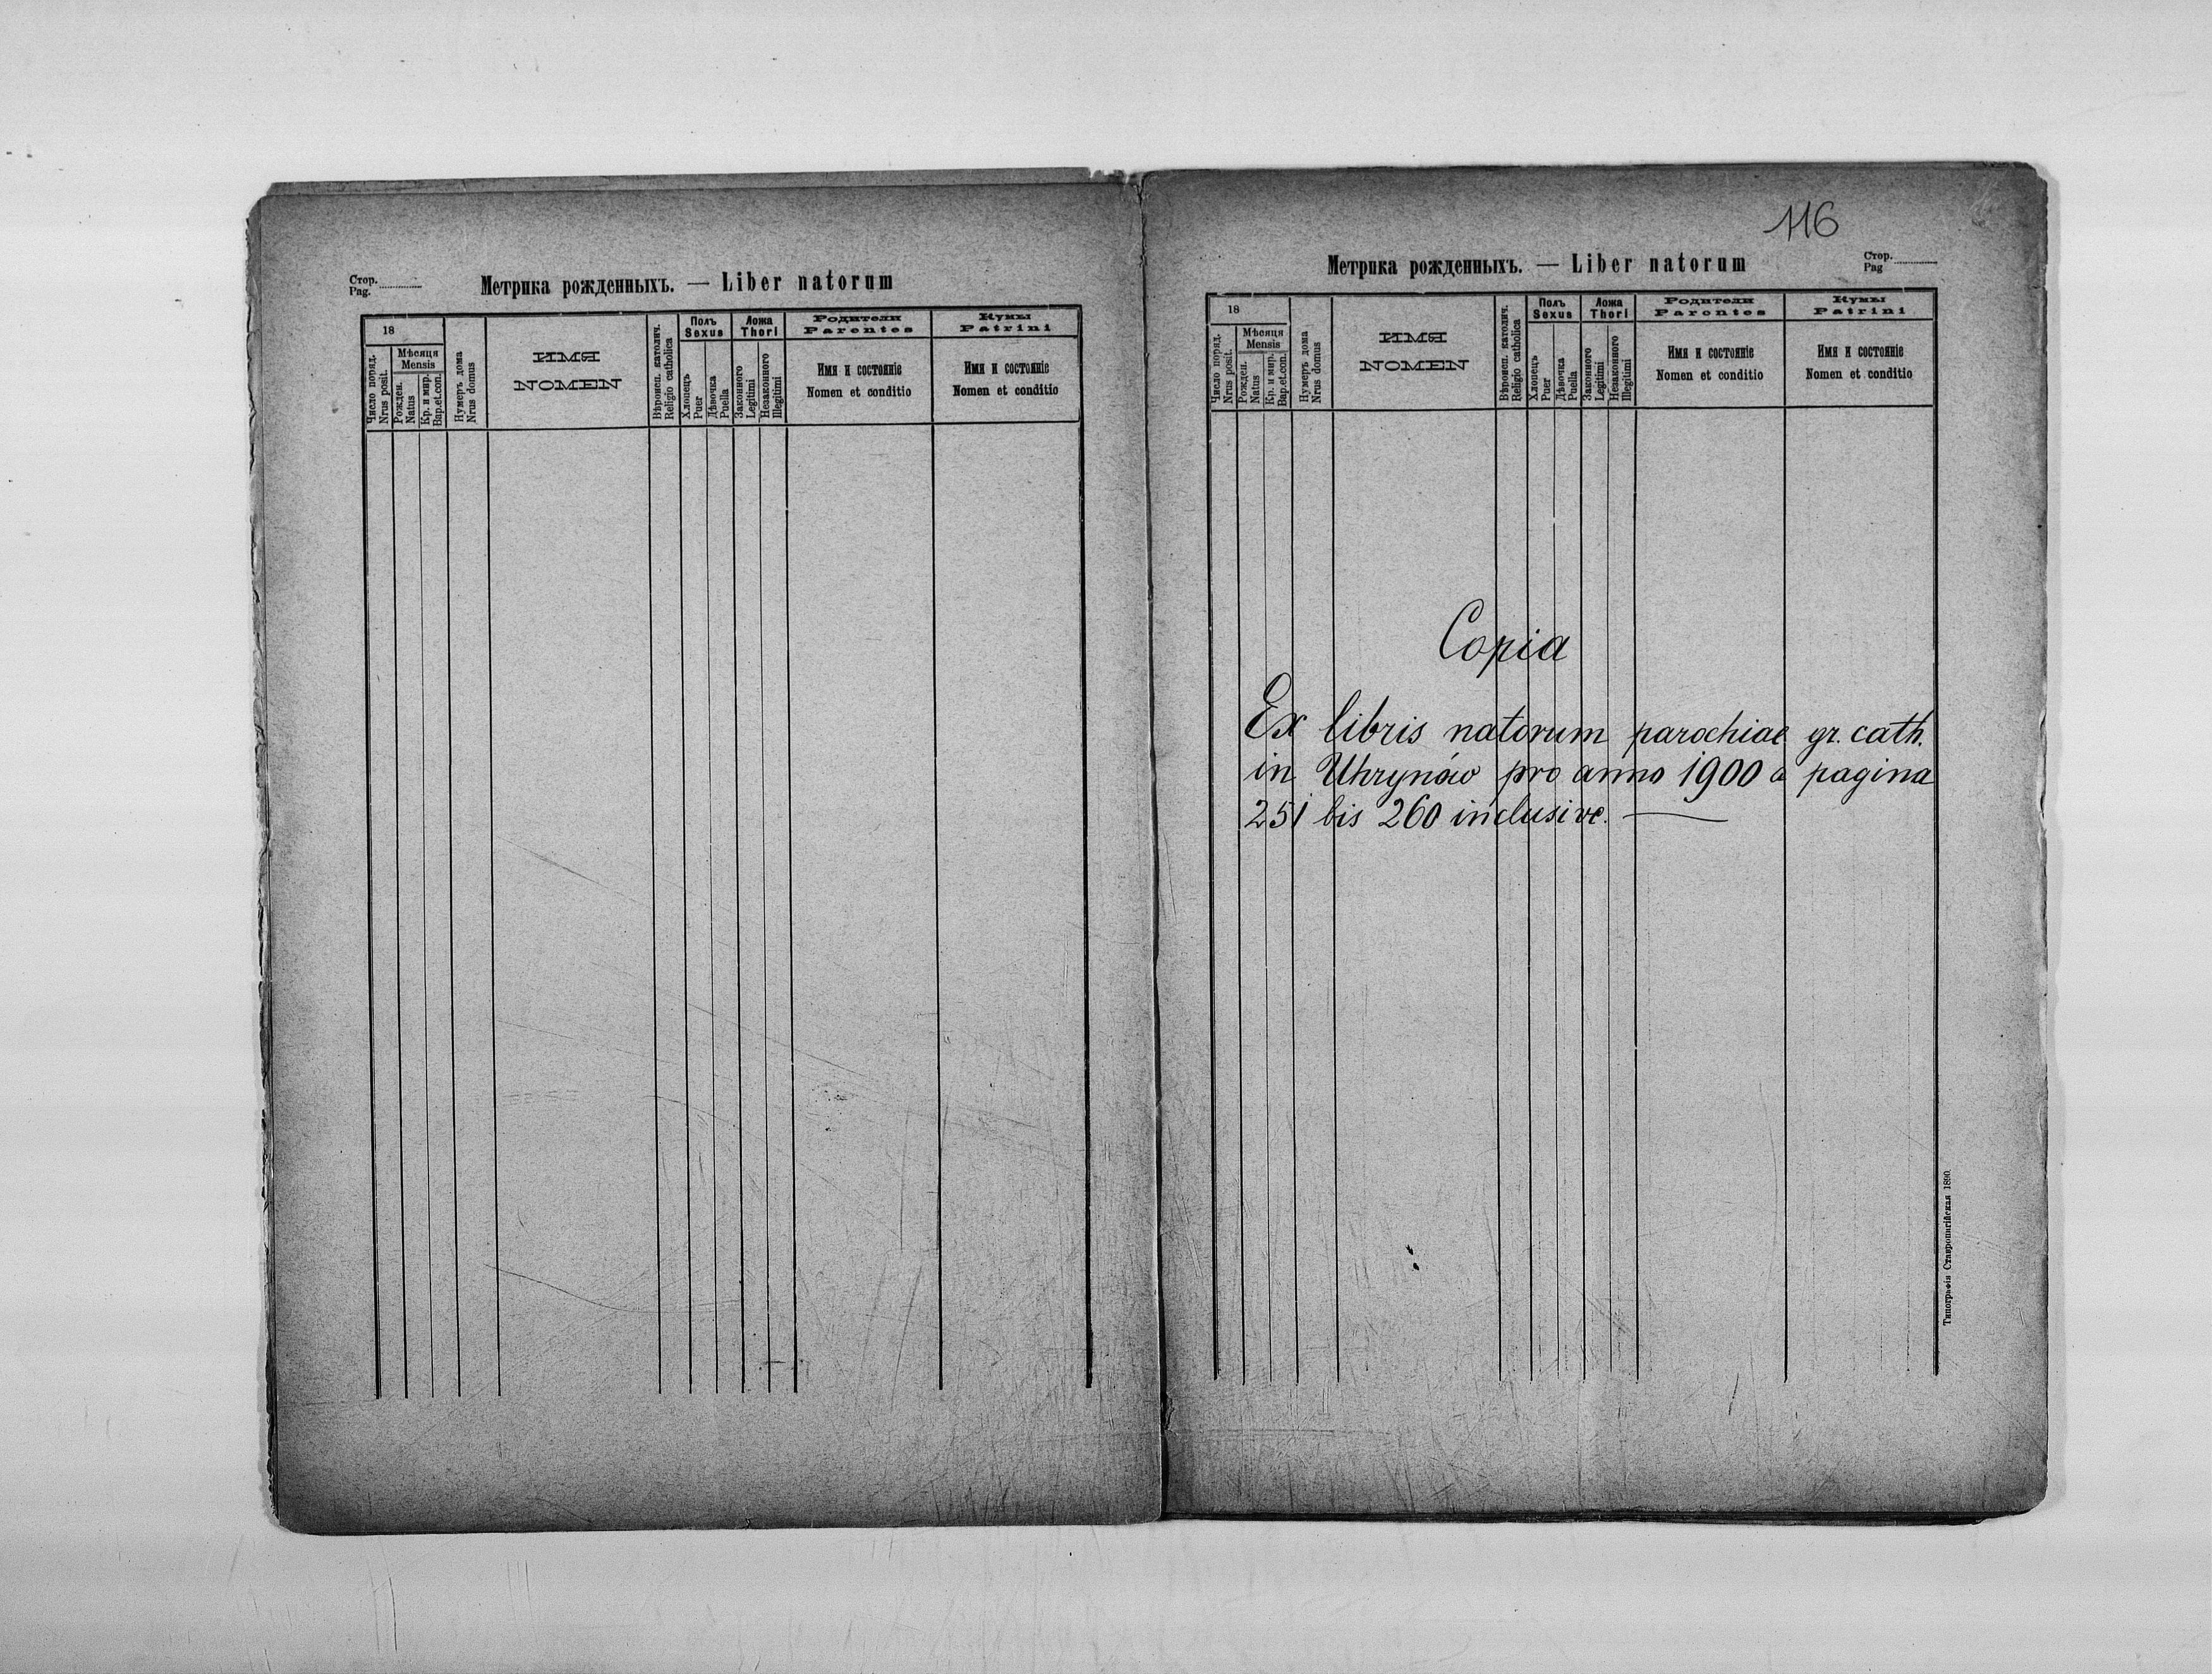 Стор.
Pag.
Метрика рожденныхъ. — Liber natorum
18
Число поряд.
Nrus posit.
Мѣсяця
Mensis
Рожден.
Natus
Кр. и мир.
Bap.et.con.
Нумеръ дома
Nrus domus
ИМЯ
NOMEN
Вѣроисп. католич.
Religio catholica
Полъ
Sexus
Хлопецъ
Puer
Дѣвочка
Puella
Ложа
Thori
Законного
Legitimi
Незаконного
Illegitimi
Родители
Parentes
Имя и состояніе
Nomen et conditio
Кумы
Patrini
Имя и состояніе
Nomen et conditio
116
Метрика рожденныхъ. — Liber natorum
Стор.
Pag
18
Число поряд.
Nrus posit.
Мѣсяця
Mensis
Рожден.
Natus
Кр. и мир.
Bap.et.con.
Нумеръ дома
Nrus domus
ИМЯ
NOMEN
Вѣроисп. католич.
Religio catholica
Полъ
Sexus
Хлопецъ
Puer
Дѣвочка
Puella
Ложа
Thori
Законного
Legitimi
Незаконного
Illegitimi
Родители
Parentes
Имя и состояніе
Nomen et conditio
Кумы
Patrini
Имя и состояніе
Nomen et conditio
Copia
Ex libris natorum parochiae gr. cath.
in Uhrynów pro anno 1900 a pagina
251 bis 260 inclusive. —
Типографія Ставропигійская